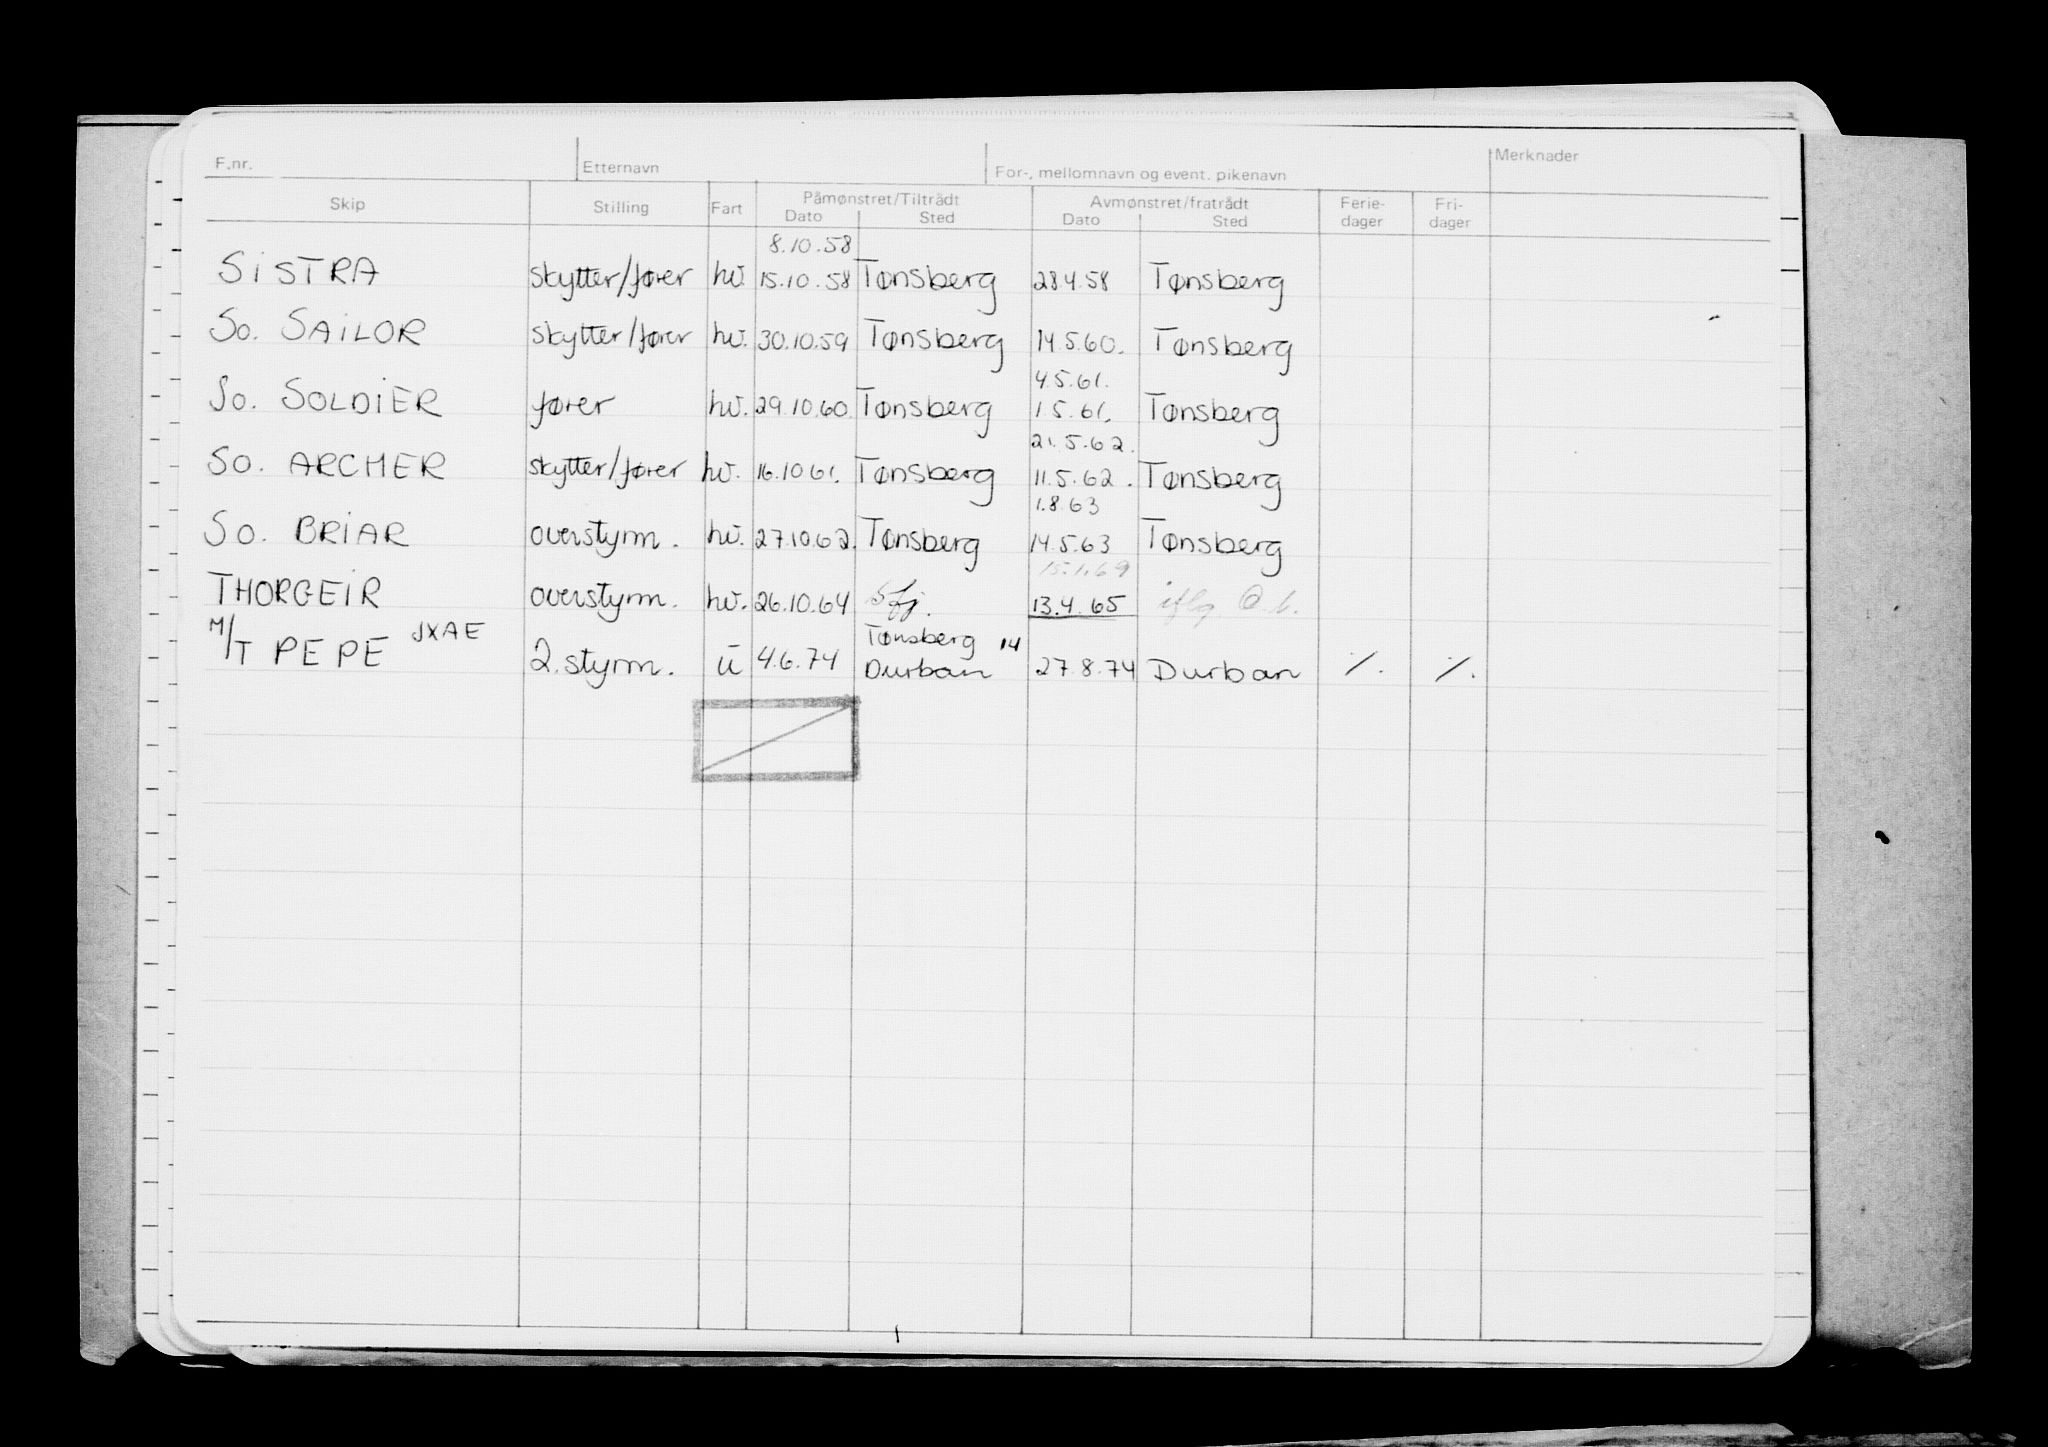 F.nr. Etternavn For-, mellomnavn og event. pikenavn Merknader
Skip Stilling Fart Påmønstret/Tiltrådt Avmønstret/fratrådt Ferie- Fri-
Dato Sted Dato Sted dager dager
8.10.58
SiSTRA skytter/fører hv. 15.10.58 Tønsberg 28.4.58 Tønsberg
So. SAiLOR skytter/fører hv. 30.10.59 Tønsberg 14.5.60. Tønsberg
4.5.61.
So. SOLDiER fører hv. 29.10.60. Tønsberg 1.5.61. Tønsberg
21.5.62.
So. ARCHER skytter/fører hv. 16.10.61. Tønsberg 11.5.62. Tønsberg
1.8.63
So. BRiAR overstyrm. hv. 27.10.62. Tønsberg 14.5.63 Tønsberg
15.1.69
THORGEiR overstyrm. hv. 26.10.64 Sfj. 13.4.65 iflg.
M/T PEPE JXAE 2.styrm. u 4.6.74 Tønsberg 14
Durban 27.8.74 Durban ⁒ ⁒